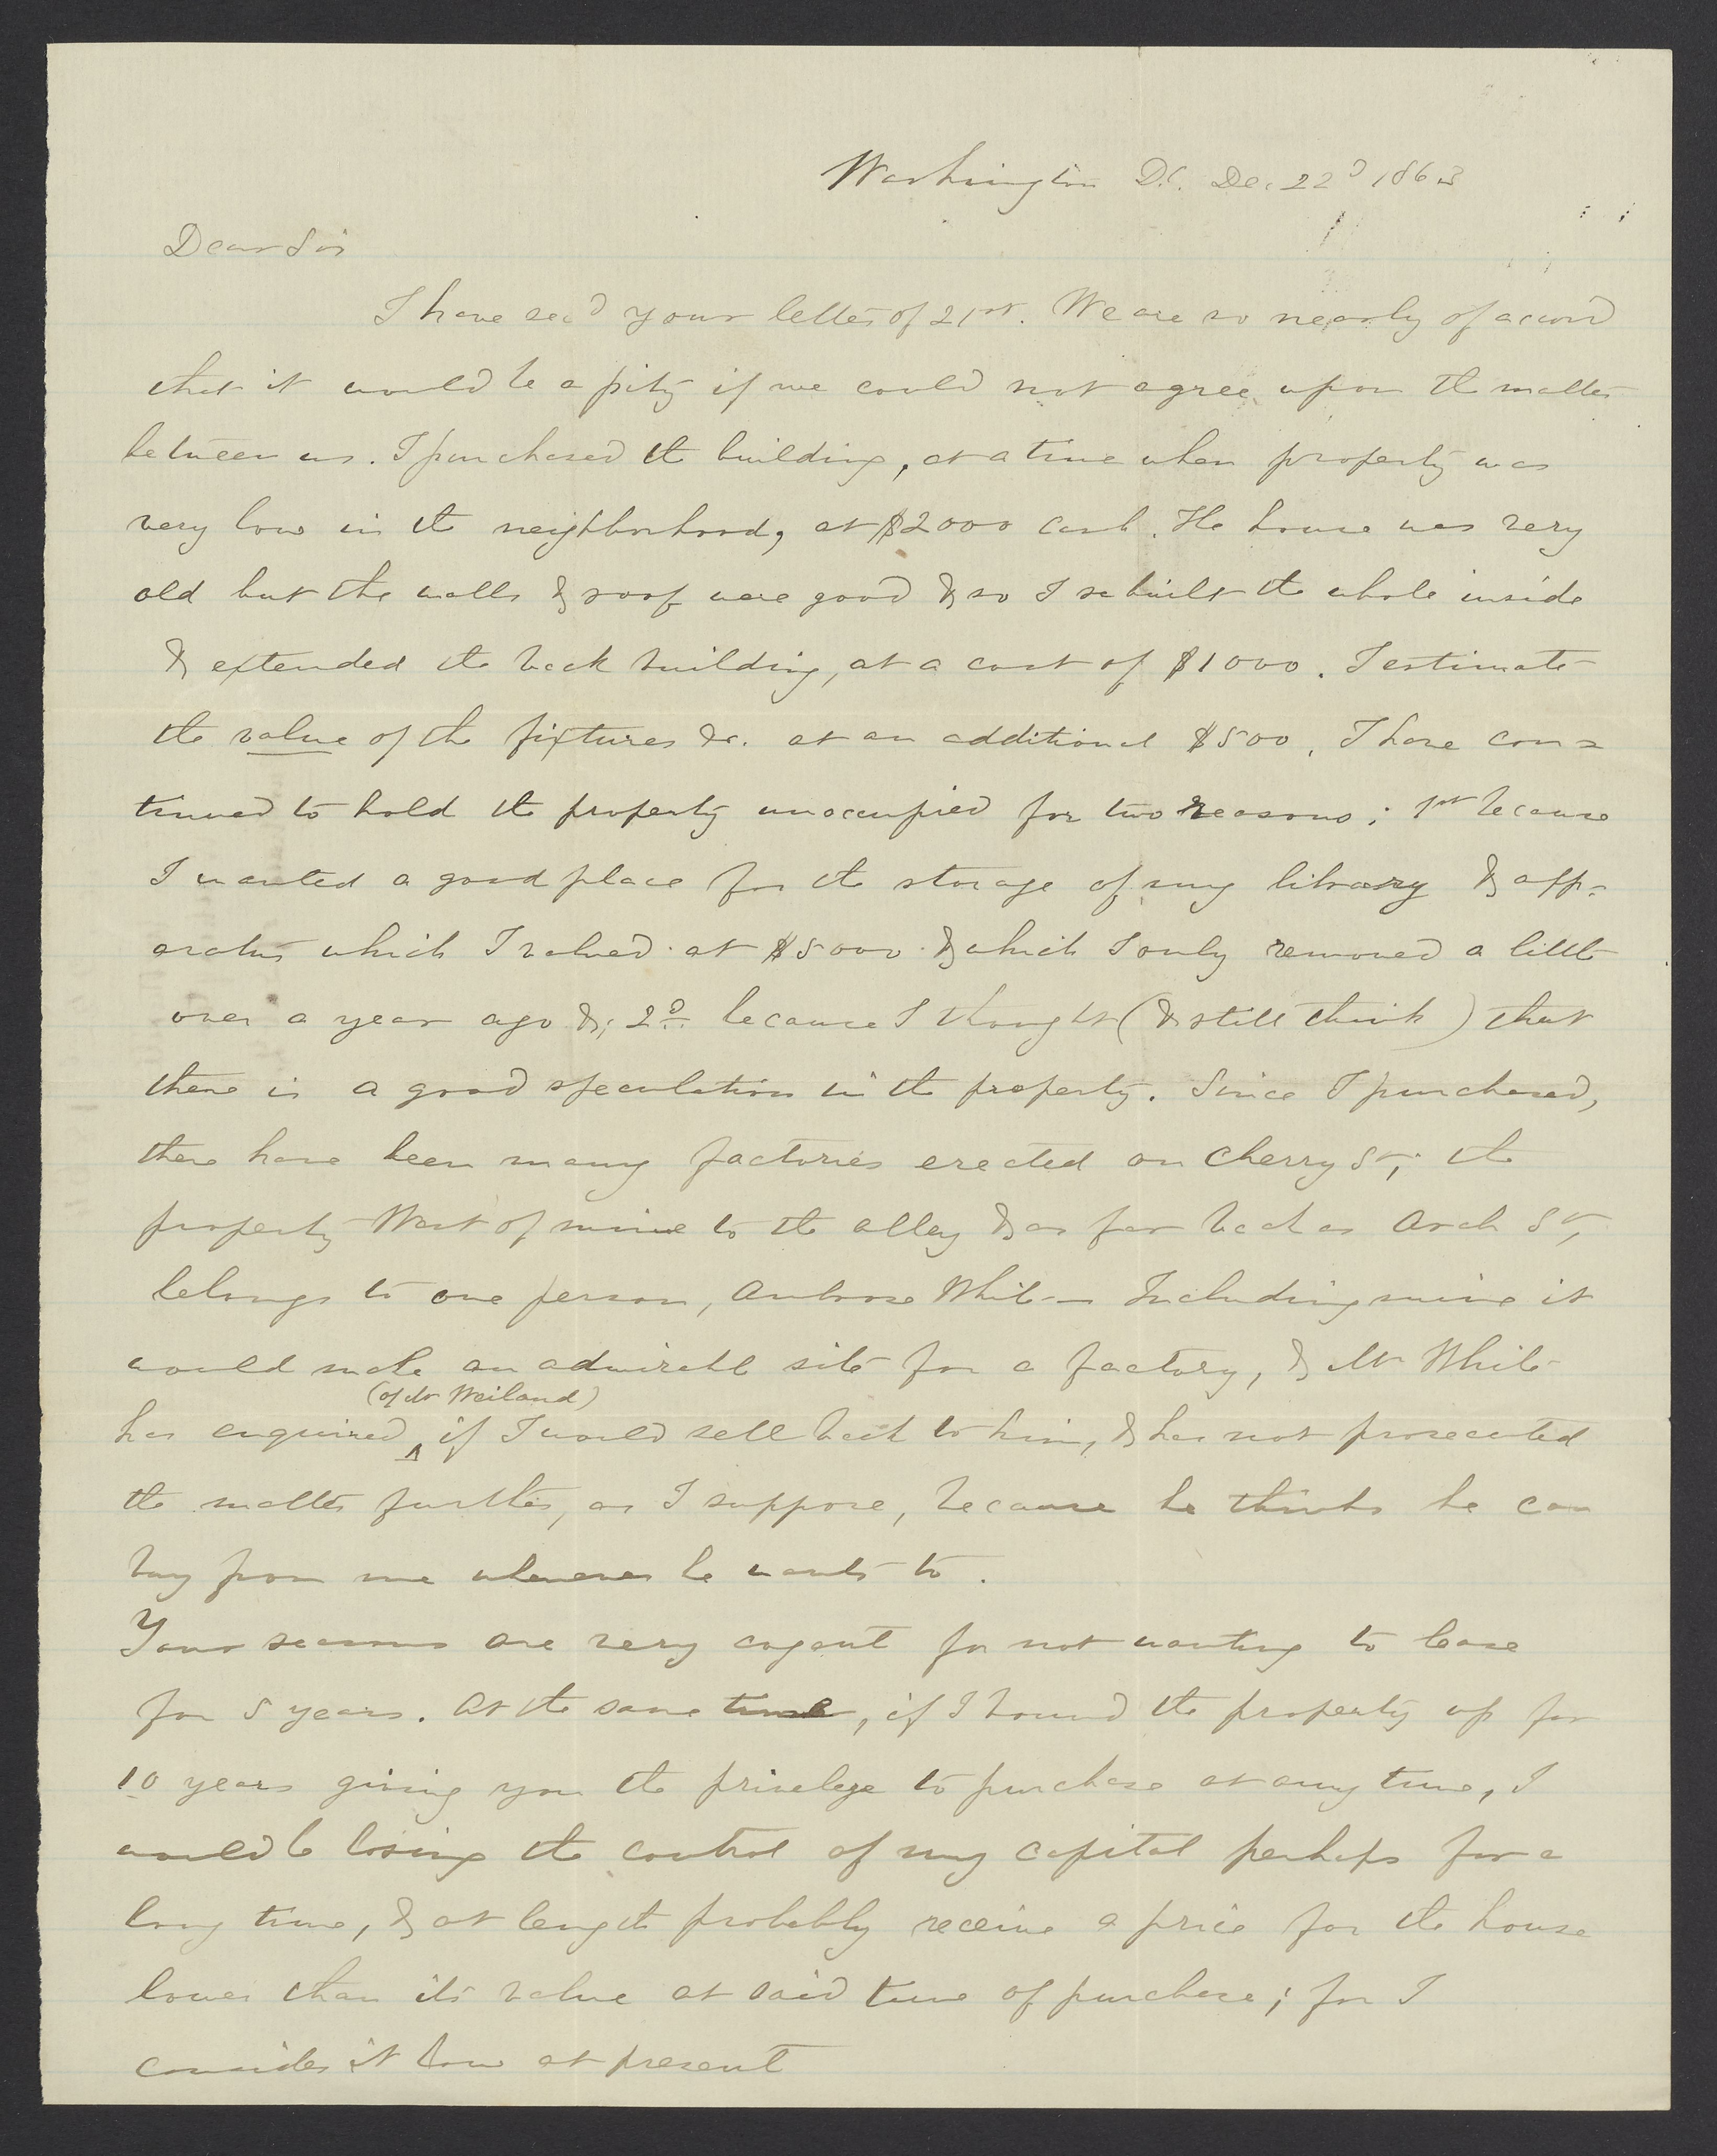 Washington D.C. Dec 22d 1863
Dear Sir
I have recd your letter of 21st. We are so nearly of accord
that it would be a pity if we could not agree upon the matter
between us. I purchased the building, at a time when property was
very low in the neighborhood, at $2000 cash. The house was very
old but the walls & roof were good & so I rebuilt the whole inside
& extended the back building, at a cost of $1000. I estimate
the value of the fixtures &c. at an additional $500. I have con=
tinued to hold the property unoccupied for two reasons; 1st because
I wanted a good place for the storage of my library & app=
aratus which I valued at $5000 & which I only removed a little
over a year ago &; 2d because I thought (& still think) that
there is a good speculation in the property. Since I purchased,
there have been many factories erected on Cherry St; the
property West of mine to the alley & as far back as Arch St,
belongs to one person, Ambrose White Including mine it
would make an admirable site for a factory, & Mr White
(of Mr Weiland)
has enquired if I would sell back to him, & has not prosecuted
the matter further, as I suppose, because he thinks he can
buy from me whenever he wants to.
Your reasons are very cogent for not wanting to lease
for 5 years. At the same time, if I bound the property up for
10 years giving you the privelege to purchase at any time, I
would be losing the control of my capital perhaps for a
long time, & at length probably receive a price for the house
lower than its value at said time of purchase; for I
consider it low at present